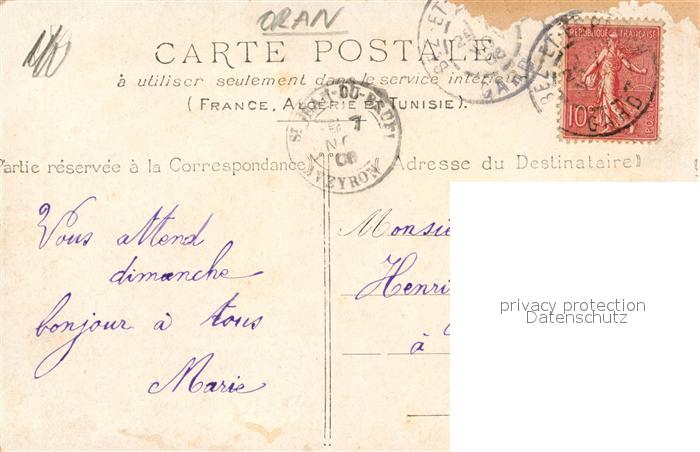 ORAN
CARTE POSTALE
à utiliser seulement dans le service intérieur
(FRANCE, ALGÉRIE ET TUNISIE).
Partie réservée à la Correspondance
Adresse du Destinataire
RÉPUBLIQUE FRANÇAISE
10
POSTES
GARD
GARD
AVEYRON
7
Vous attend
dimanche
bonjour à tous
Marie
Monsie
Henri
à
privacy protection
Datenschutz